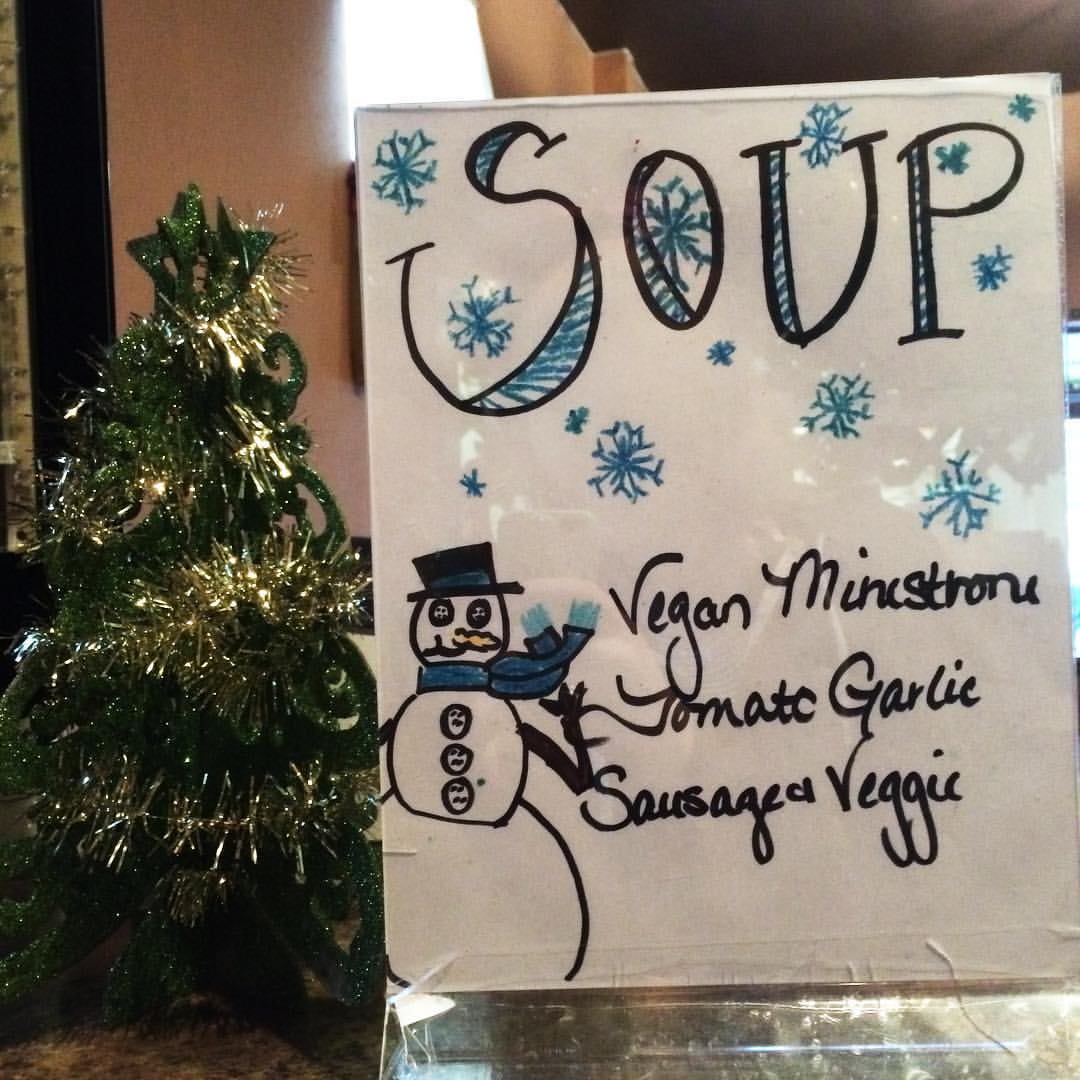 SOUP
Vegan Ministrone
Tomato Garlic
Sausage & Veggie